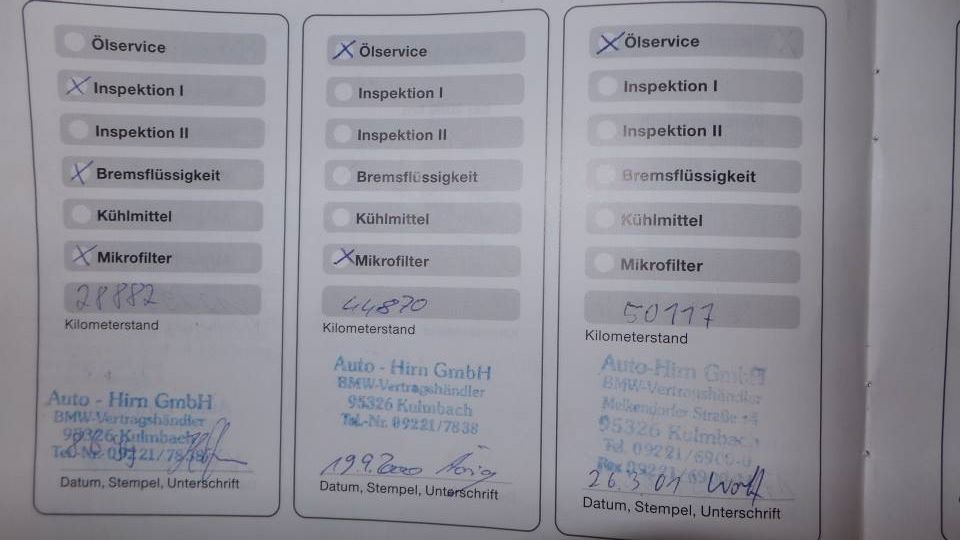 Ölservice
Inspektion I
Inspektion II
Bremsflüssigkeit
Kühlmittel
Mikrofilter
28882
Kilometerstand
Auto - Hirn GmbH
BMW-Vertragshändler
95326 Kulmbach
Tel.-Nr. 09221/7838
Datum, Stempel, Unterschrift
Ölservice
Inspektion I
Inspektion II
Bremsflüssigkeit
Kühlmittel
Mikrofilter
44870
Kilometerstand
Auto - Hirn GmbH
BMW-Vertragshändler
95326 Kulmbach
Tel.-Nr. 09221/7838
19.9.2000
Datum, Stempel, Unterschrift
Ölservice
Inspektion I
Inspektion II
Bremsflüssigkeit
Kühlmittel
Mikrofilter
50117
Kilometerstand
Auto-Hirn GmbH
BMW-Vertragshändler
Melkendorfer Straße
95326 Kulmbach
Tel. 09221/6900-0
Fax 09221/6900
26.3.01 Wolf
Datum, Stempel, Unterschrift